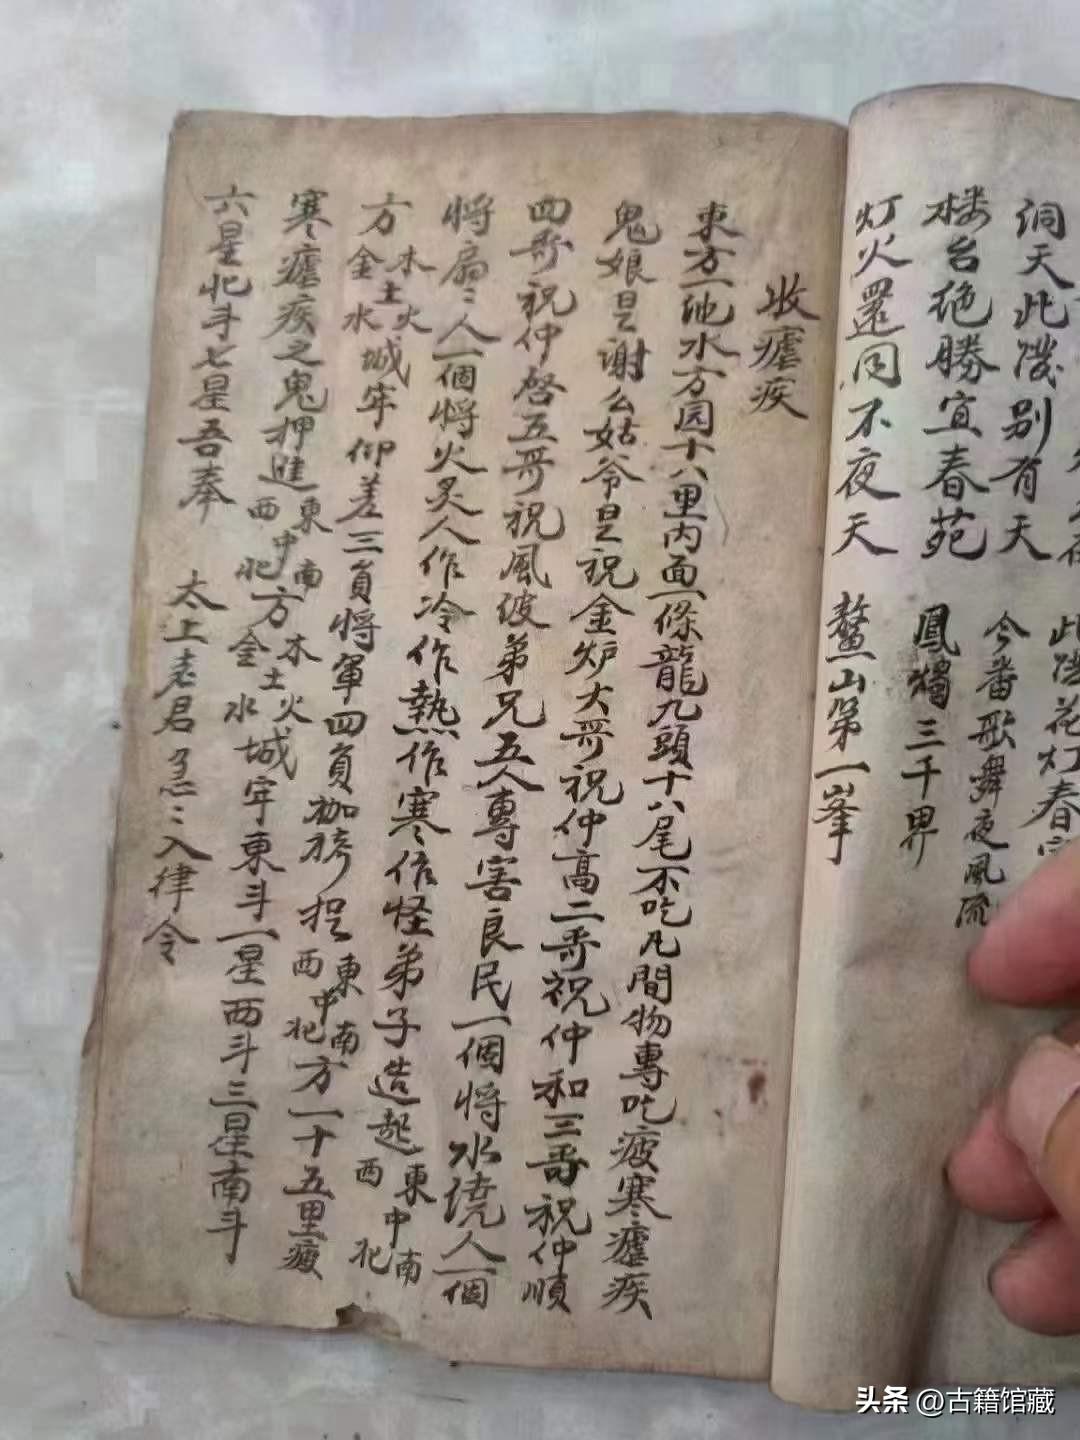 洞天此儀别有天
今番歌舞夜風流
楼台绝勝宜春苑
鳳燭三千界
灯火還同不夜天
鰲山第一峯
收瘧疾
東方一池水方园十八里内面一條龍九頭十八尾不吃凡間物專吃疲寒瘧疾
鬼娘是謝么姑爷是祝金炉大哥祝仲高二哥祝仲和三哥祝仲順
四哥祝仲啓五哥祝風波弟兄五人專害良民一個將水澆人一個
將扇〻人一個將火炙人作冷作熱作寒作怪弟子造起東西中南北
方木金土火水城牢仰差三員將軍四員枷捞捉東西中南北方一十五里疲
寒瘧疾之鬼押進東西中南北方木金土火水城牢東斗一星西斗三星南斗
六星北斗七星吾奉
太上老君急〻入律令
头条 @古籍馆藏